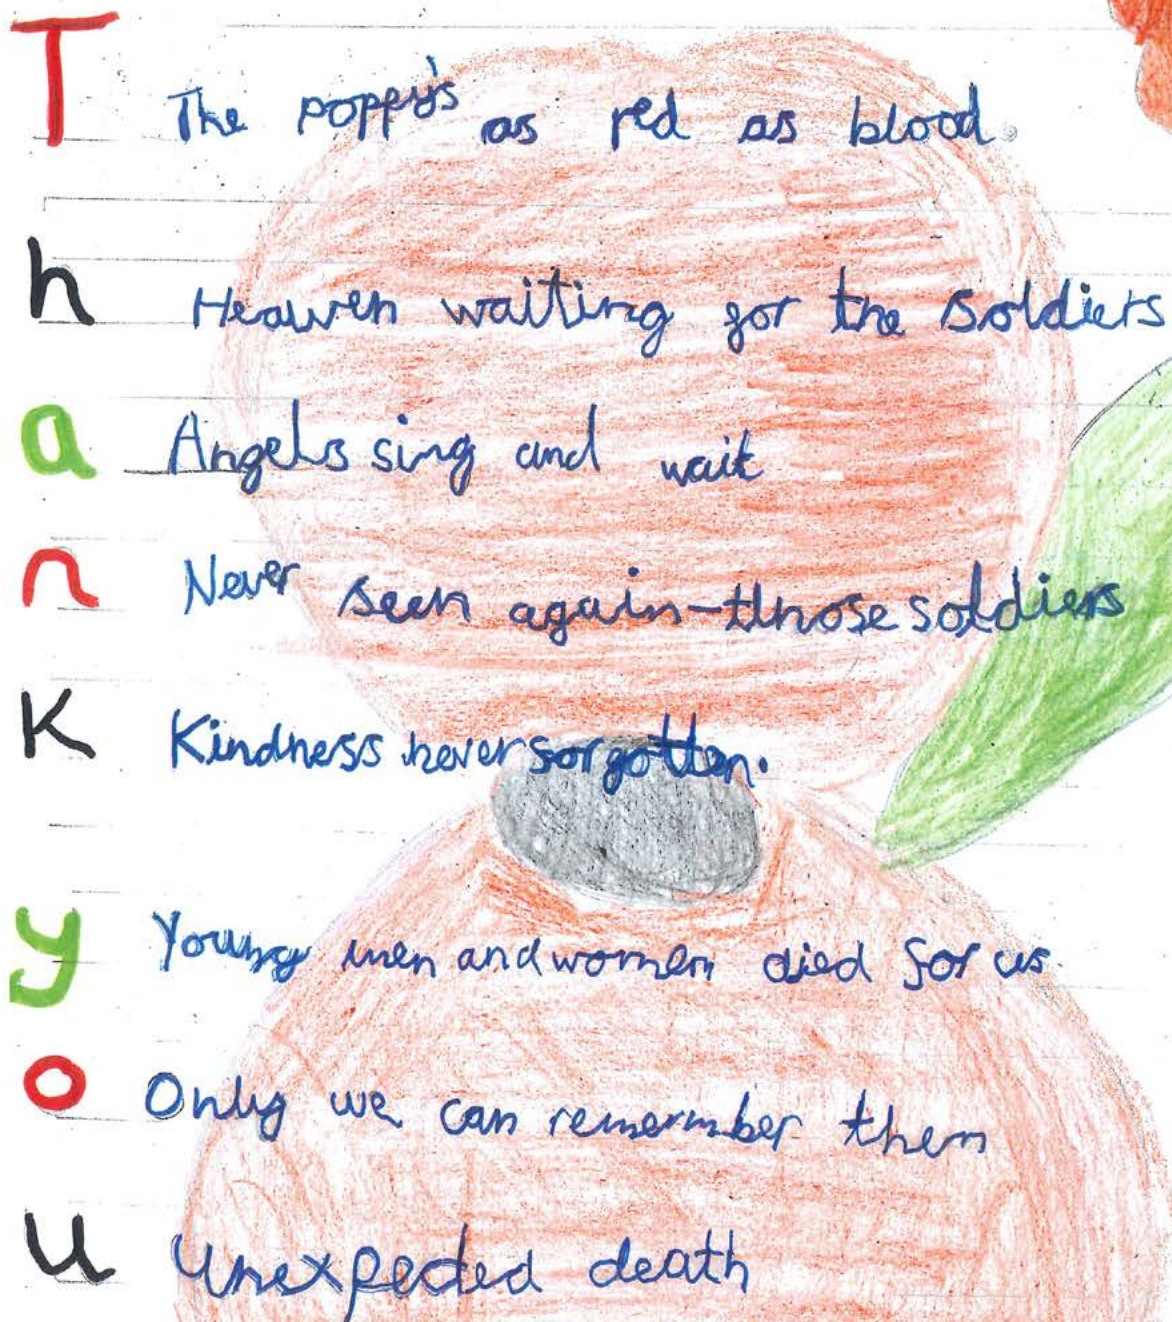 T The poppy's as red as blood.
h Heaven waiting for the soldiers
a Angels sing and wait
n Never seen again-those soldiers
K Kindness never forgotten.
y Young men and women died for us.
o Only we can remember them
u Unexpected death